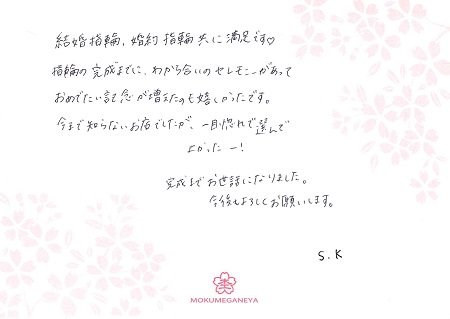 結婚指輪、婚約指輪共に満足です♡
指輪の完成までに、わかち合いのセレモニーがあって
おめでたい記念が増えたのも嬉しかったです。
今まで知らないお店でしたが、一目惚れで選んで
よかったー!
完成までお世話になりました。
今後もよろしくお願いします。
S.K
MOKUMEGANEYA